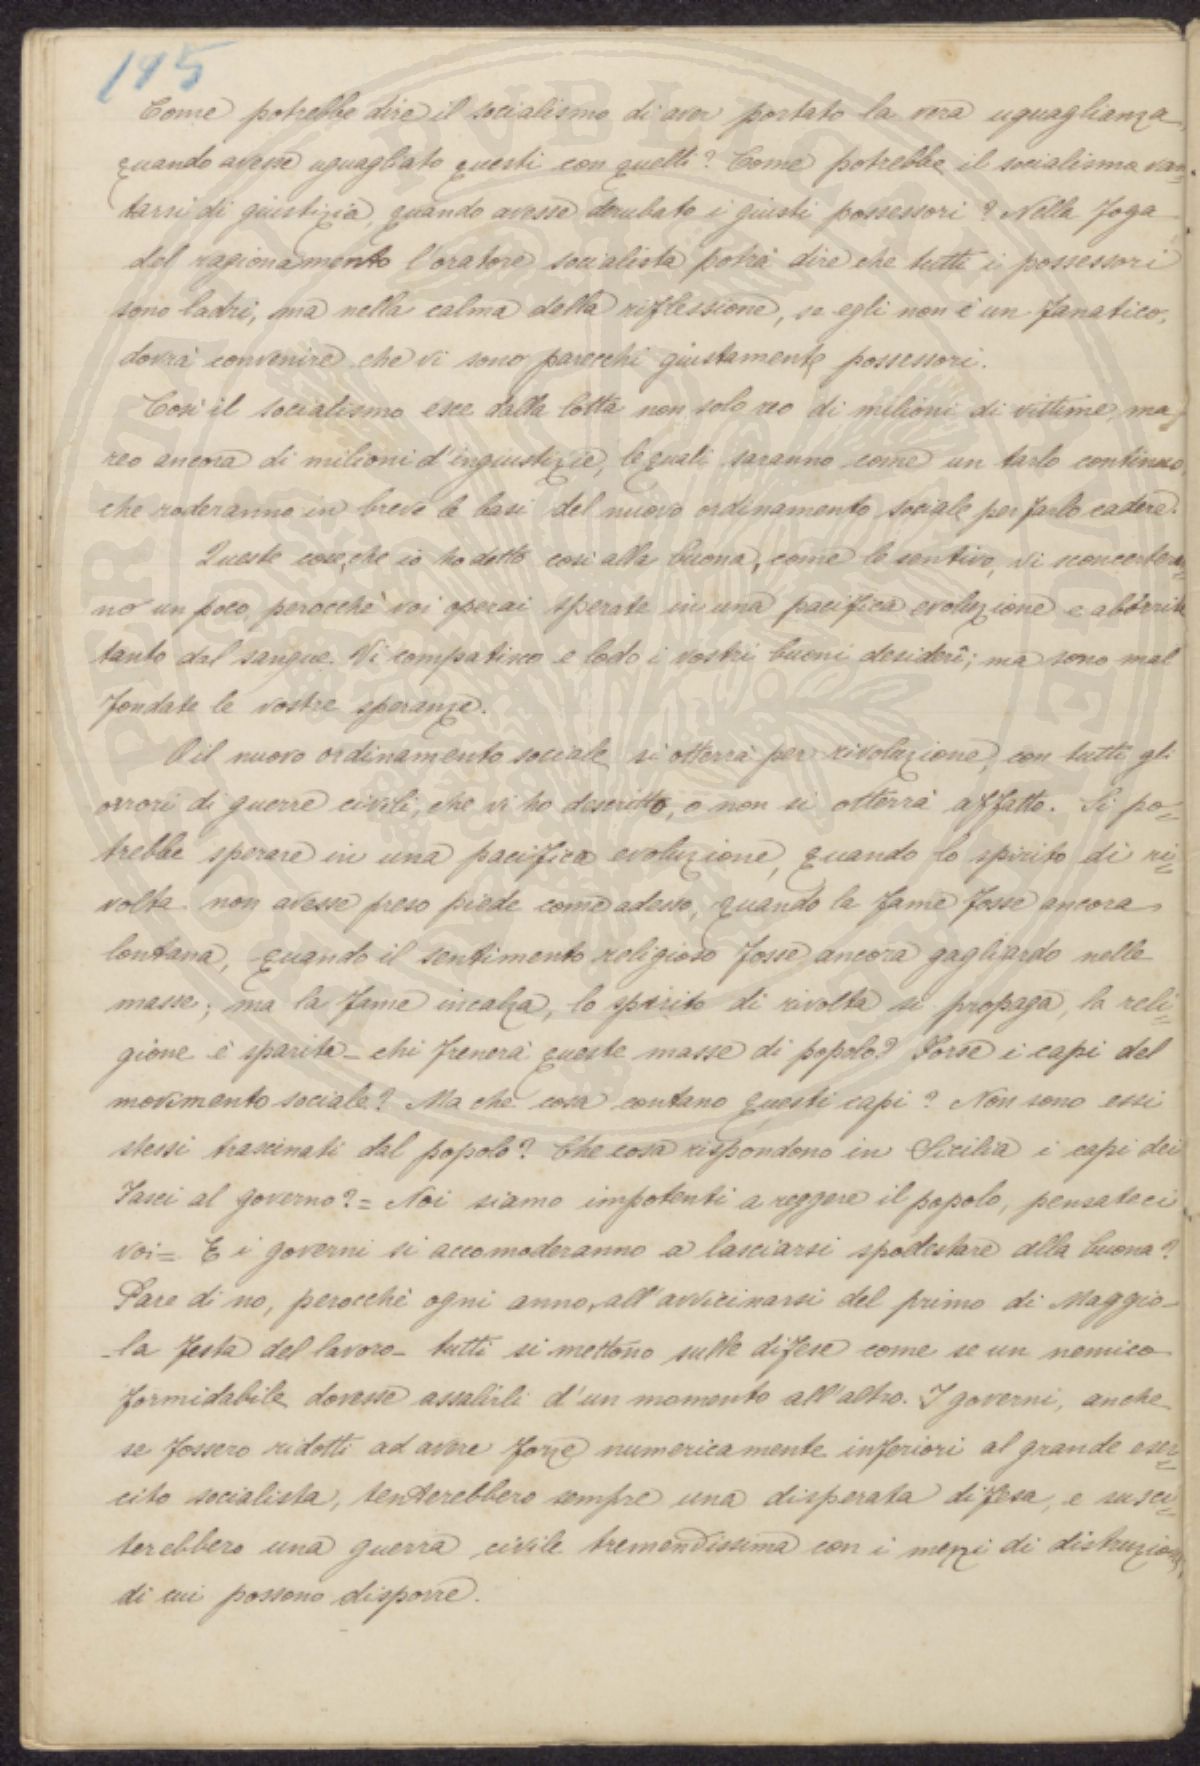 145
Come potrebbe dire il socialismo di aver portato la vera uguaglianza,
quando avesse uguagliato questi con quelli? Come potrebbe il socialismo van=
tarsi di giustizia, quando avesse derubato i giusti possessori? Nella foga
del ragionamento l'oratore socialista potrà dire che tutti i possessori
sono ladri, ma nella calma della riflessione, se egli non è un fanatico,
dovrà convenire che vi sono parecchi giustamente possessori.
Così il socialismo esce dalla lotta non solo reo di milioni di vittime, ma
reo ancora di milioni d'ingiustizie, le quali saranno come un tarlo continuo
che roderanno in breve le basi del nuovo ordinamento sociale per farlo cadere.
Queste cose, che io ho detto così alla buona, come le sentivo, vi sconcertera=
no un poco, perocchè voi operai sperate in una pacifica evoluzione e aborrite
tanto dal sangue. Vi compatisco e lodo i vostri buoni desiderî; ma sono mal
fondate le vostre speranze.
O il nuovo ordinamento sociale si otterrà per rivoluzione, con tutti gli
orrori di guerre civili, che vi ho descritto, o non si otterrà affatto. Si po=
trebbe sperare in una pacifica evoluzione, quando lo spirito di ri=
volta non avesse preso piede come adesso, quando la fame fosse ancora
lontana, quando il sentimento religioso fosse ancora gagliardo nelle
masse; ma la fame incalza, lo spirito di rivolta si propaga, la reli=
gione è sparita - chi frenerà queste masse di popolo? Forse i capi del
movimento sociale? Ma che cosa contano questi capi? Non sono essi
stessi trascinati dal popolo? Che cosa rispondono in Sicilia i capi dei
Fasci al governo? = Noi siamo impotenti a reggere il popolo, pensateci
voi = E i governi si accomoderanno a lasciarsi spodestare alla buona?
Pare di no, perocchè ogni anno, all'avvicinarsi del primo di Maggio -
- la festa del lavoro - tutti si mettono sulle difese come se un nemico
formidabile dovesse assalirli d'un momento all'altro. I governi, anche
se fossero ridotti ad avere forze numericamente inferiori al grande eser=
cito socialista, tenterebbero sempre una disperata difesa, e susci=
terebbero una guerra civile tremendissima con i mezzi di distruzione,
di cui possono disporre.